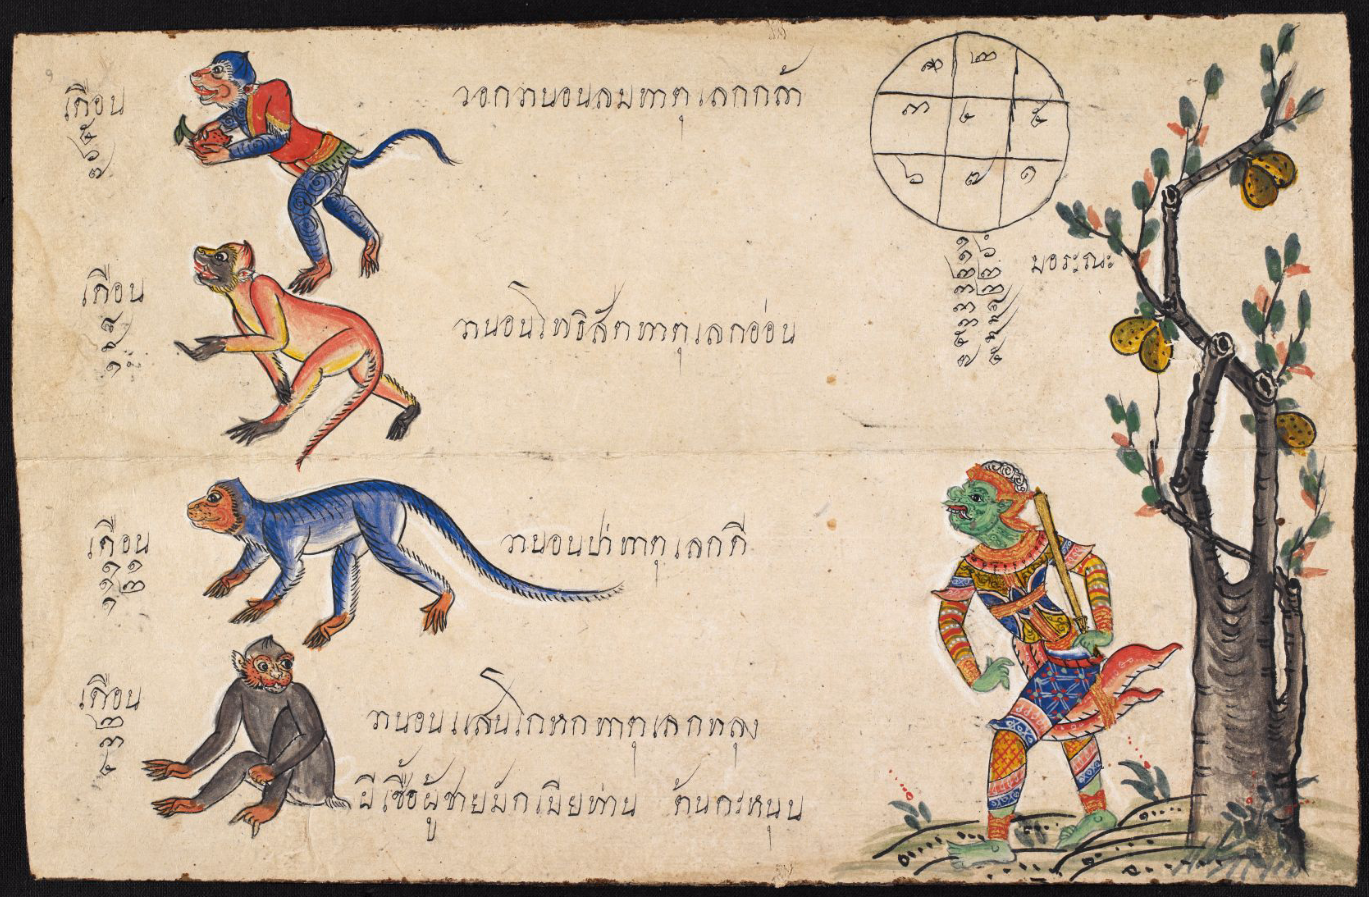 เดือน
๕
๖
๗
วอกวานอนลมทาตุเลกกล้า
เดือน
๘
๙
๑๐
วานอนโพธิสัตทาตุเลกอ่อน
เดือน
๑๑
๑๒
๑
วานอนป่าทาตุเลกดี
เดือน
๒
๓
๔
วานอนแสนโกหกทาตุเลกหลุง
ผีเซื้อผู้ชายมักเมียท่าน ต้นกะหนุน
๘ ๒
๓ ๔ ๕
๖ ๗ ๑
มอระณะ